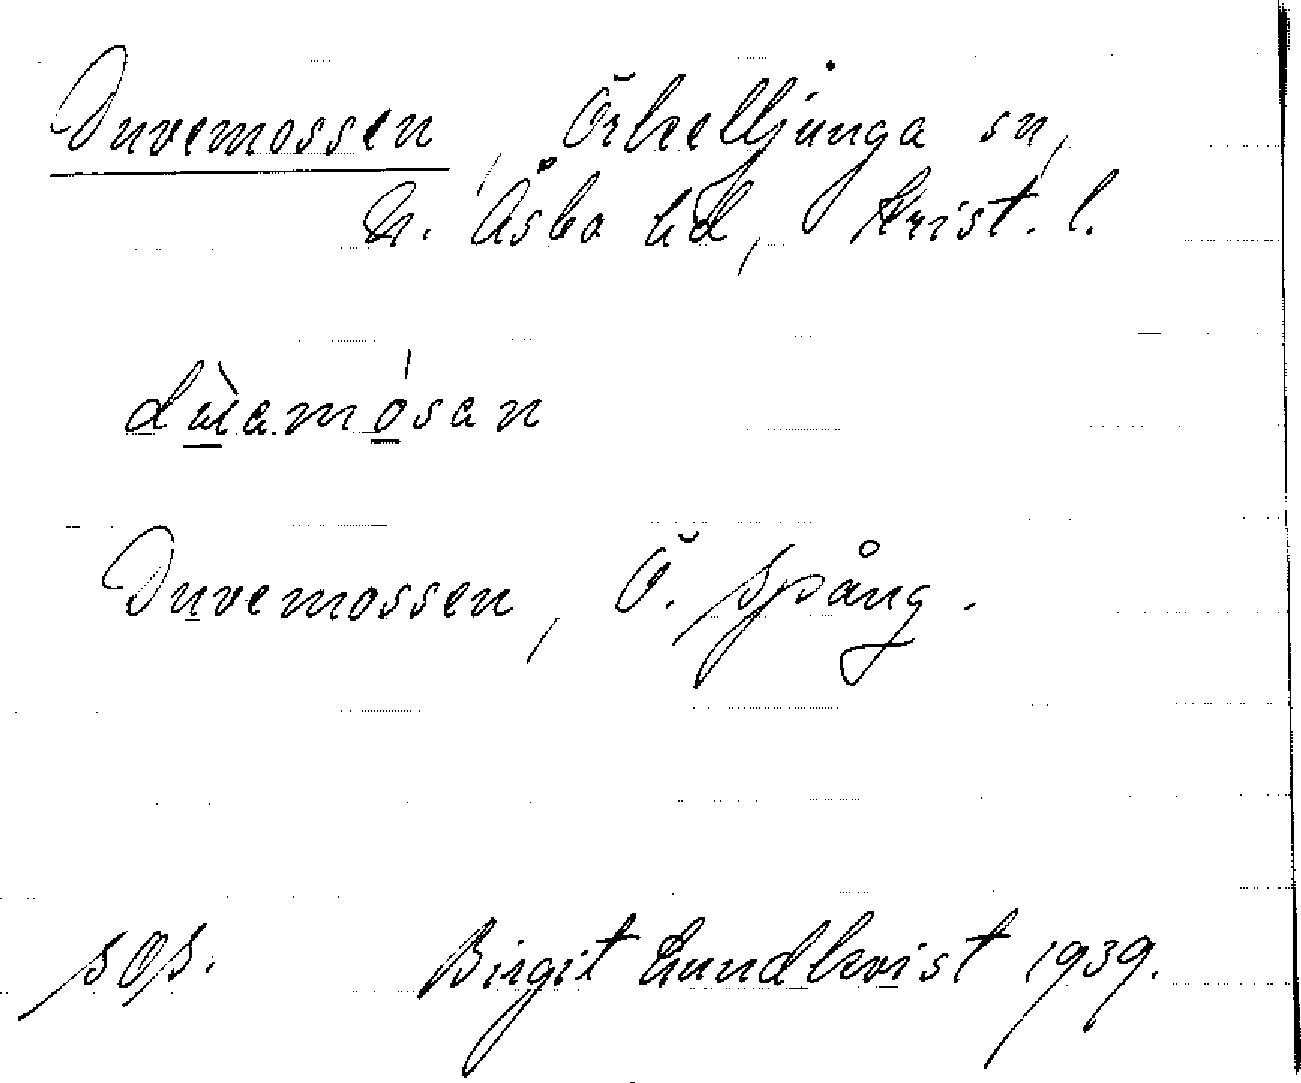 Duvemossen, Örkelljunga sn,
N. Åsbo hd, Krist. l.
dùamósan
Duvemossen, Ö. Spång.
SOS. Birgit Lundkvist 1939.